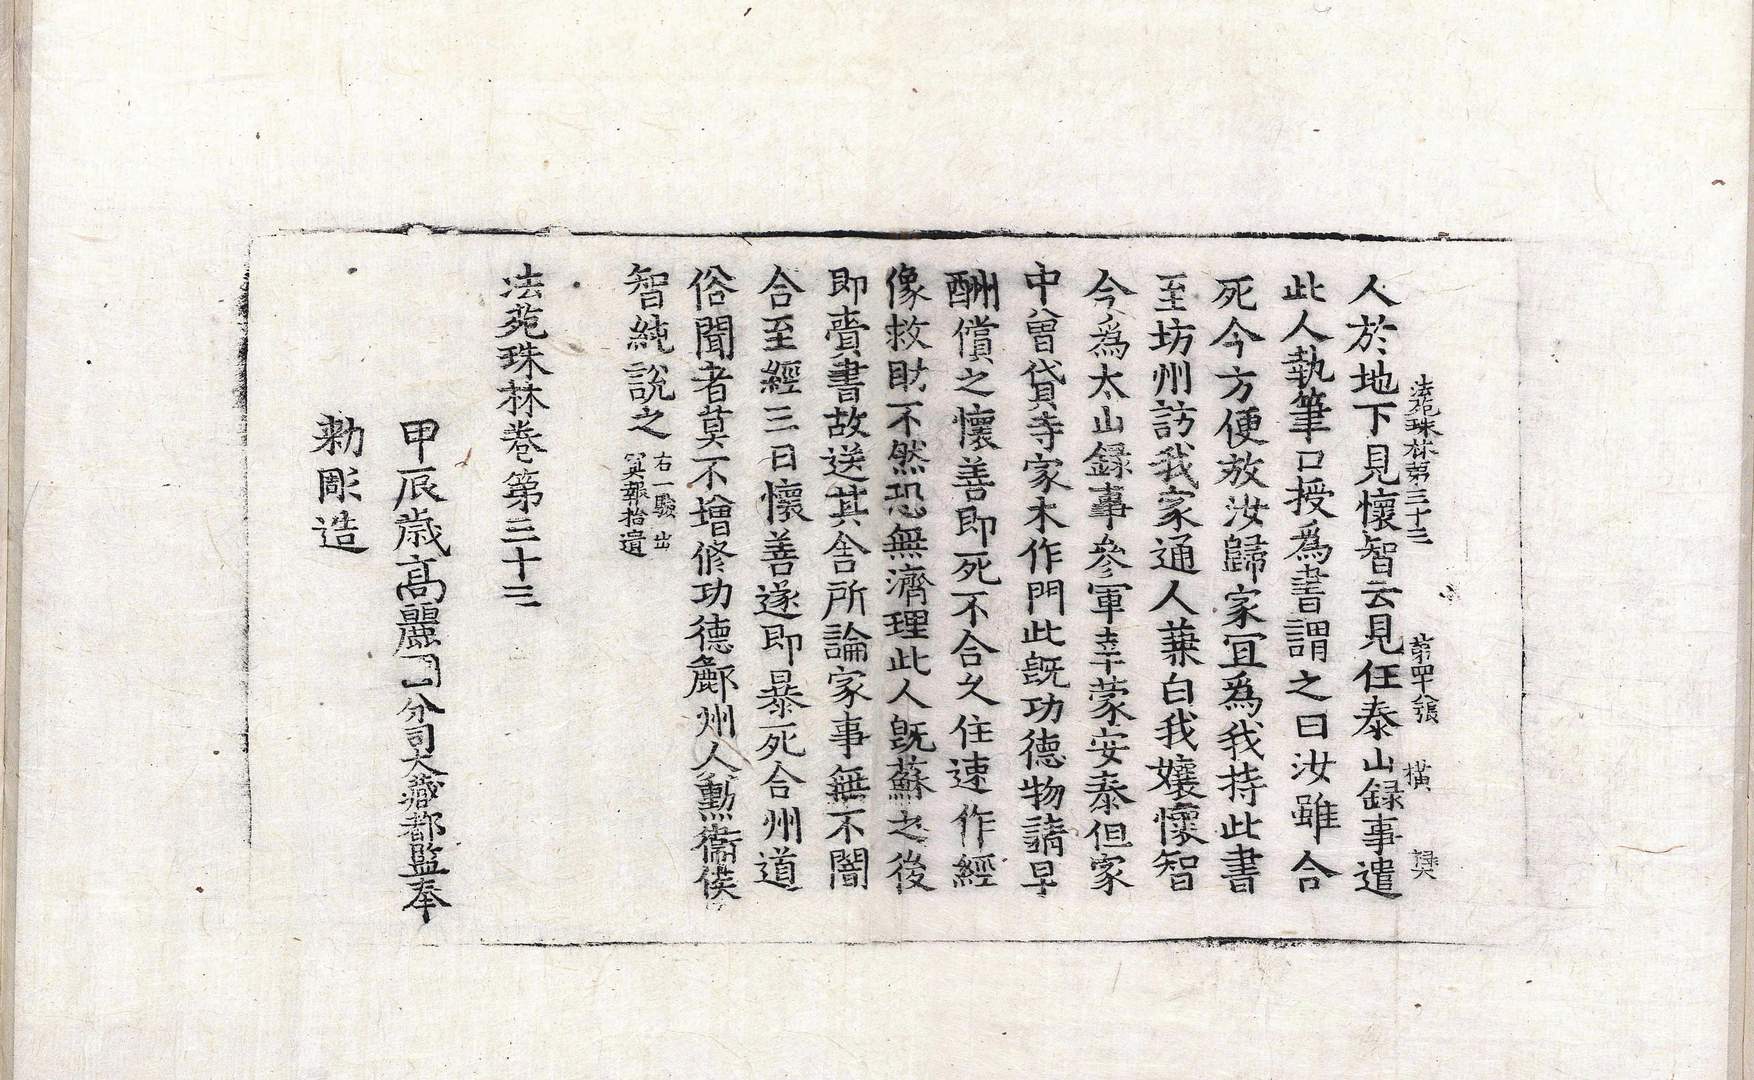 法苑珠林第三十三 第四十張 橫 樊
人於地下見懷智云見任泰山録事遣
此人執筆口授爲書謂之曰汝雖合
死今方便放汝歸家冝爲我持此書
至坊州訪我家通人蒹白我孃懷智
今爲太山録事參軍幸蒙安泰但家
中曾貸寺家木作門此旣功德物請早
酬償之懷善即死不合久住速作經
像救助不然恐無濟理此人旣蘇之後
即賷書故送其舎所論家事無不闇
合至經三日懷善遂即暴死合州道
俗聞者莫不增修功德鄜州人勳衞侯
智純說之 右一驗出
冥報拾遺
法苑珠林卷第三十三
甲辰歳髙麗國分司大藏都監奉
勅彫造